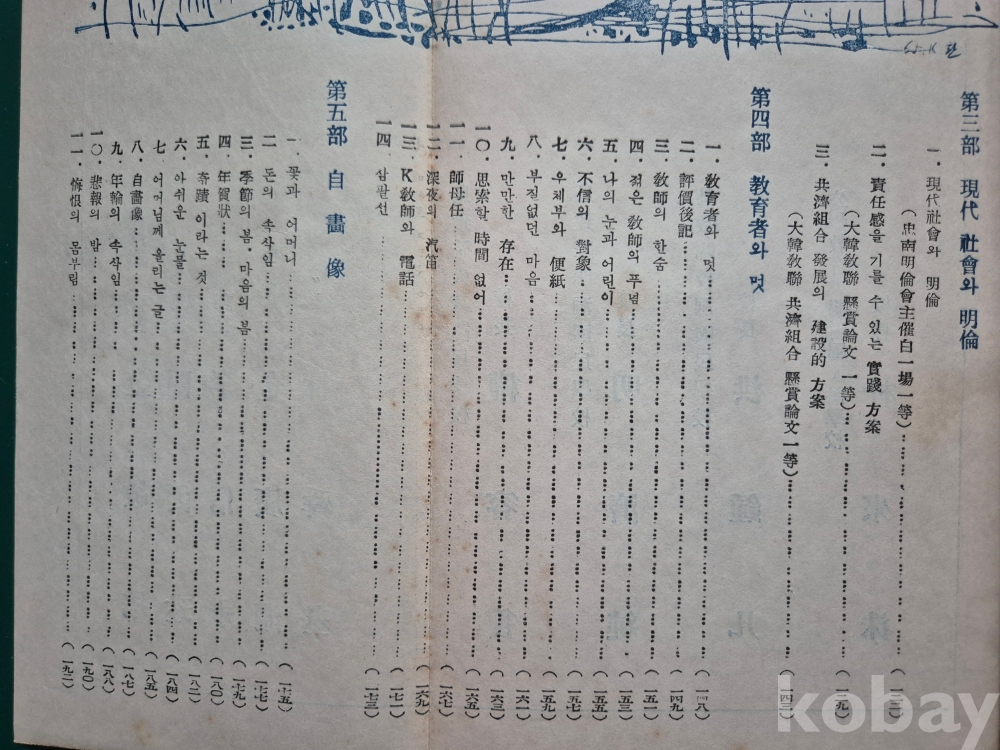 第三部 現代 社會와 明倫
一. 現代社會와 明倫
(忠南明倫會主催白一場一等)……(一三一)
二. 責任感을 기를 수 있는 實踐 方案
(大韓敎聯 懸賞論文 一等)……(一三九)
三. 共濟組合 發展의 建設的 方案
(大韓敎聯 共濟組合 懸賞論文一等)……(一四三)
第四部 敎育者와 멋
一. 敎育者와 멋……(一四八)
二. 評價後記……(一四九)
三. 敎師의 한숨……(一五一)
四. 젊은 敎師의 푸념……(一五三)
五. 나의 눈과 어린이……(一五五)
六. 不信의 對象……(一五七)
七. 우체부와 便紙……(一五九)
八. 부질없던 마음……(一六一)
九. 만만한 存在……(一六三)
一〇. 思索할 時間 없어……(一六五)
一一. 師母任……(一六七)
一二. 深夜의 汽笛……(一六九)
一三. K敎師와 電話……(一七一)
一四. 삼팔선……(一七三)
第五部 自畫像
一. 꽃과 어머니……(一七五)
二. 돈의 속삭임……(一七七)
三. 季節의 봄·마음의 봄……(一七九)
四. 年賀狀……(一八〇)
五. 奇蹟이라는 것……(一八二)
六. 아쉬운 눈물……(一八四)
七. 어머님께 올리는 글……(一八五)
八. 自畫像……(一八七)
九. 年輪의 속삭임……(一八八)
一〇. 悲報의 밤……(一九〇)
一一. 悔恨의 몸부림……(一九二)
kobay